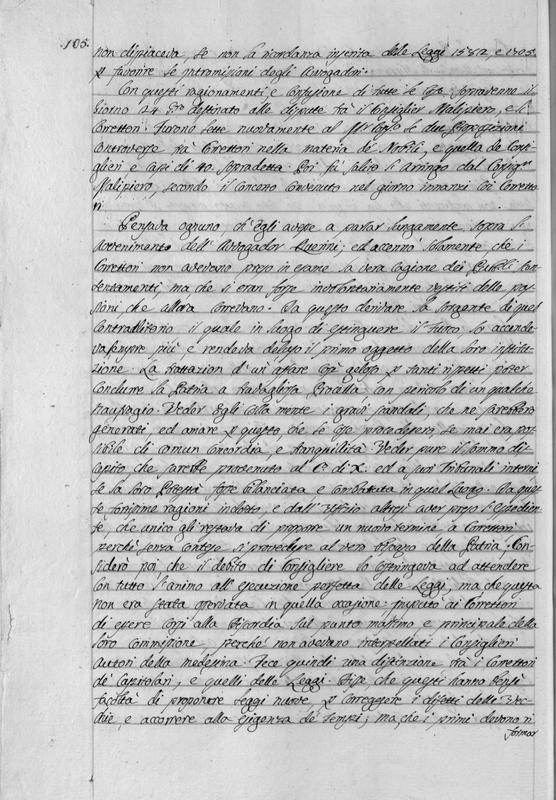 105.
non dispiaceva, se non la ricordanza inserita delle Leggi 1582, e 1305.
p favorire le intromissioni degli Avogadori.
Con questi ragionamenti e Confusione di tutte le cose, sopravenne il
Giorno 24. destinato alle dispute frà il Consiglier Malipiero, e li
Corretori. Furono lette nuovamente al le due Proposizioni
Controverse frà Corretori nella materia di Nobili, e quella de Consi-
glieri e Capi di 40. sopradetta. Poi fù salito l'Arringo dal Consigr.
Malipiero, secondo il concerto convenuto nel giorno innanzi Coi Corretto-
ri.
Pensava ognuno, ch'egli avesse a parlar lungamente sopra l'
Avvenimento dell'Avogador Querini; ed accennò solamente che i
Corretori non avevano preso in esame la vera Cagione dei Publici scon-
certamenti, ma che si eran forse involontariamente vestiti delle pas-
sioni, che allora correvano. Da questo derivare la sorgente di quel
Contradittorio il quale in luogo di estinguere il fuoco, lo accende-
va sempre più e rendeva deluso il primo oggetto della loro institu-
zione. La trattazion d'un affare così geloso p tanti rispetti poter
Condurre la Patria a travagliosa Procella, con pericolo di un qualche
Naufragio. Veder Egli colla mente i gravi scandali, che ne sarebbero
generati, ed amare p questo che le cose procedessero, se mai era pos-
sibile di comun Concordia, e tranquillità. Veder pure il sommo di-
scapito che sarebbe provenuto al C. di X. ed a suoi Tribunali interni
se la loro Potestà fosse bilanciata e Combattuta in quel luogo. Da que-
ste fortissime ragioni indotto, e dall'Uffizio altresì aver preso l'espedien-
te, che unico gli restava di proporre un nuovo termine a Corretori
perchè senza contese si provedesse al vero bisogno della Patria. Con-
siderò poi che il debito di Consigliere lo costringeva ad attendere
con tutto l'animo all'esecuzione perfetta delle Leggi, ma che questa
non era stata osservata in quella occasione. Imputò ai Corretori
di essere essi alla discordia sul punto massimo e principale della
loro commissione, perchè non avevano interpellati i Consiglieri
Autori della medesima. Fece quindi una distinzione trà i Corretori
de' Capitolari, e quelli delle Leggi. Disse che questi hanno bensì
facoltà di proponere Leggi nuove, p correggere i difetti delle Vec-
chie, e accorrere alla esigenza de' tempi; ma, che i primi devono ri
formar